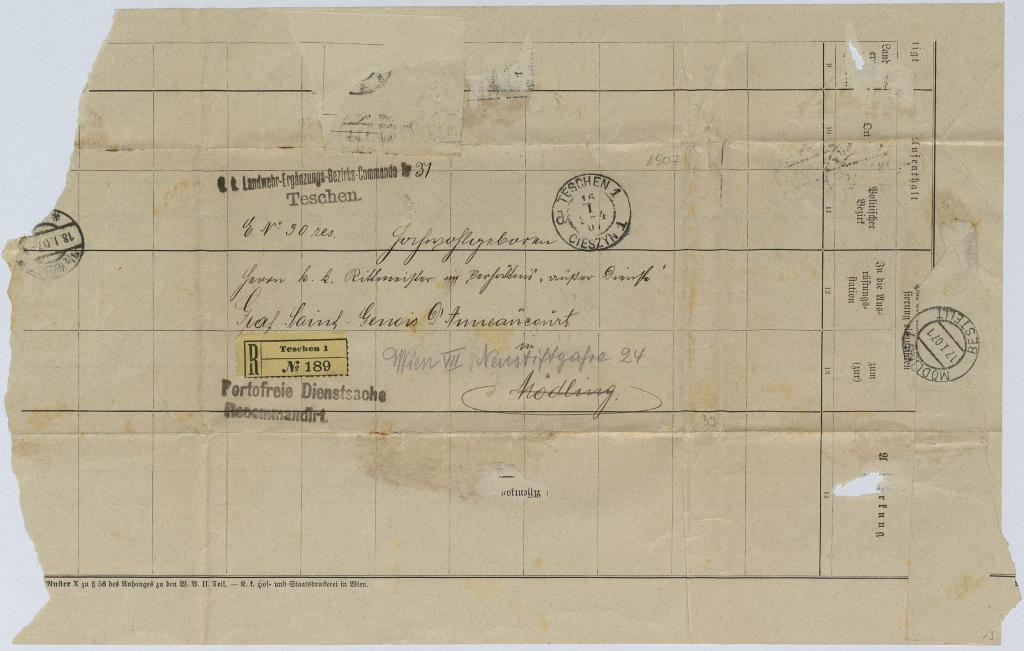 1907
K. k. Landwehr-Ergänzungs-Bezirks-Commando Nr 31
Teschen.
TESCHEN 1
CIESZYN 1
E. No 30 res.
Hochwohlgeboren
Herrn k. k. Rittmeister im Verhältnis „außer Dienst“
Graf Saint-Genois D'Anneaucourt
in
Wien VII, Neustiftgasse 24
Mödling.
R
Teschen 1
No 189
Portofreie Dienstsache
Recommandirt.
30
18.I.07
BESTELLT
17.I.07
MÖDLING
tigt
9
Ort
10
Aufenthalt
Politischer
Bezirk
11
In die Aus-
rüstungs-
station
12
zum
(zur)
13
14
Muster X zu § 58 des Anhanges zu den W. V. II. Teil. — K. k. Hof- und Staatsdruckerei in Wien.